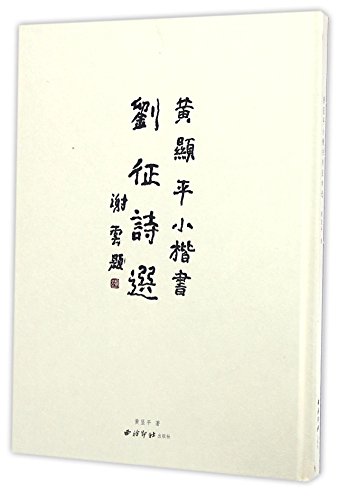 黄顯平小楷書
劉征詩選
謝雲題
黄显平 著
西泠印社出版社